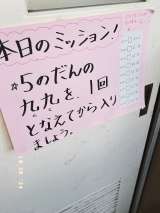 本日のミッション!
☆5のだんの
九九を、1回
となえてから入り
ましょう。